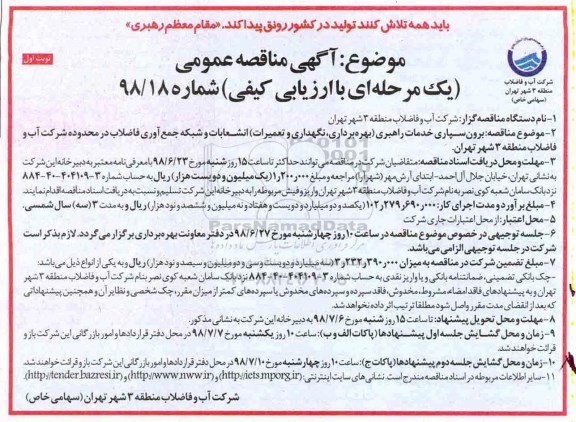 باید همه تلاش کنند تولید در کشور رونق پیدا کند. «مقام معظم رهبری»
نوبت اول
موضوع: آگهی مناقصه عمومی
(یک مرحله‌ای با ارزیابی کیفی) شماره ۹۸/۱۸
شرکت آب و فاضلاب
منطقه ۳ شهر تهران
(سهامی خاص)
۱- نام دستگاه مناقصه گزار: شرکت آب و فاضلاب منطقه ۳ شهر تهران
۲- موضوع مناقصه: برون سپاری خدمات راهبری (بهره برداری، نگهداری و تعمیرات) انشعابات و شبکه جمع آوری فاضلاب در محدوده شرکت آب و
فاضلاب منطقه ۳ شهر تهران.
۳- مهلت و محل دریافت اسناد مناقصه: متقاضیان شرکت در مناقصه می توانند حداکثر تا ساعت ۱۵ روز شنبه مورخ ۹۸/۶/۲۳ با معرفی نامه معتبر به دبیرخانه این شرکت
به نشانی تهران، خیابان جلال آل احمد- ابتدای آرش مهر (شهرآرا) مراجعه و مبلغ ۱٫۲۰۰٫۰۰۰ (یک میلیون و دویست هزار) ریال به حساب شماره ۳-۴۰۴۱۰۹-۴۰-۸۸۴
نزد بانک سامان شعبه کوی نصر به نام شرکت آب و فاضلاب منطقه ۳ شهر تهران واریز و فیش مربوطه را به دبیرخانه این شرکت تسلیم و نسبت به دریافت اسناد مناقصه اقدام نمایند.
۴- مبلغ برآورد و مدت اجرای کار: ۱۰۲٫۲۷۹٫۶۹۰٫۰۰۰ (یکصد و دو میلیارد و دویست و هفتاد و نه میلیون و ششصد و نود هزار) ریال و به مدت ۳ (سه) سال شمسی.
۵- محل اعتبار: از محل اعتبارات جاری شرکت
۶- جلسه توجیهی در خصوص موضوع مناقصه در ساعت ۱۰ روز چهارشنبه مورخ ۹۸/۶/۲۷ در دفتر معاونت بهره برداری برگزار می گردد. لازم بذکر است
شرکت در جلسه توجیهی الزامی می باشد.
۷- مبلغ تضمین شرکت در مناقصه به میزان ۳٫۲۳۲٫۳۹۰٫۰۰۰ (سه میلیارد و دویست و سی و دو میلیون و سیصد و نود هزار) ریال و به یکی از انواع ذیل می باشد:
-چک بانکی تضمینی، ضمانتنامه بانکی و یا واریز نقدی به حساب شماره ۳-۴۰۴۱۰۹-۴۰-۸۸۴ نزد بانک سامان شعبه کوی نصر بنام شرکت آب و فاضلاب منطقه ۳ شهر
تهران و به پیشنهادهای فاقد امضاء مشروط، مخدوش، فاقد سپرده و سپرده های مخدوش یا سپرده های کمتر از میزان مقرر، چک شخصی و نظایر آن و همچنین پیشنهاداتی
که بعد از انقضای مدت مقرر واصل شود مطلقا ترتیب اثر داده نخواهد شد.
۸- مهلت و محل تحویل پیشنهاد: تا ساعت ۱۵ روز شنبه مورخ ۹۸/۷/۶ به دبیرخانه این شرکت به نشانی مذکور.
۹- زمان و محل گشایش جلسه اول پیشنهادها (پاکات الف و ب): ساعت ۱۰ روز یکشنبه مورخ ۹۸/۷/۷ در محل دفتر قراردادها و امور بازرگانی این شرکت باز و
قرائت خواهند شد.
۱۰- زمان و محل گشایش جلسه دوم پیشنهادها (پاکات ج): ساعت ۱۰ روز چهارشنبه مورخ ۹۸/۷/۱۰ در محل دفتر قراردادها و امور بازرگانی این شرکت باز و قرائت خواهند شد.
۱۱- سایر اطلاعات مربوطه در اسناد مناقصه مندرج است. نشانی های سایت اینترنتی: (http://iets.mporg.ir) و (http://www.nww.ir) و (http://tender.bazresi.ir)
شرکت آب و فاضلاب منطقه ۳ شهر تهران (سهامی خاص)